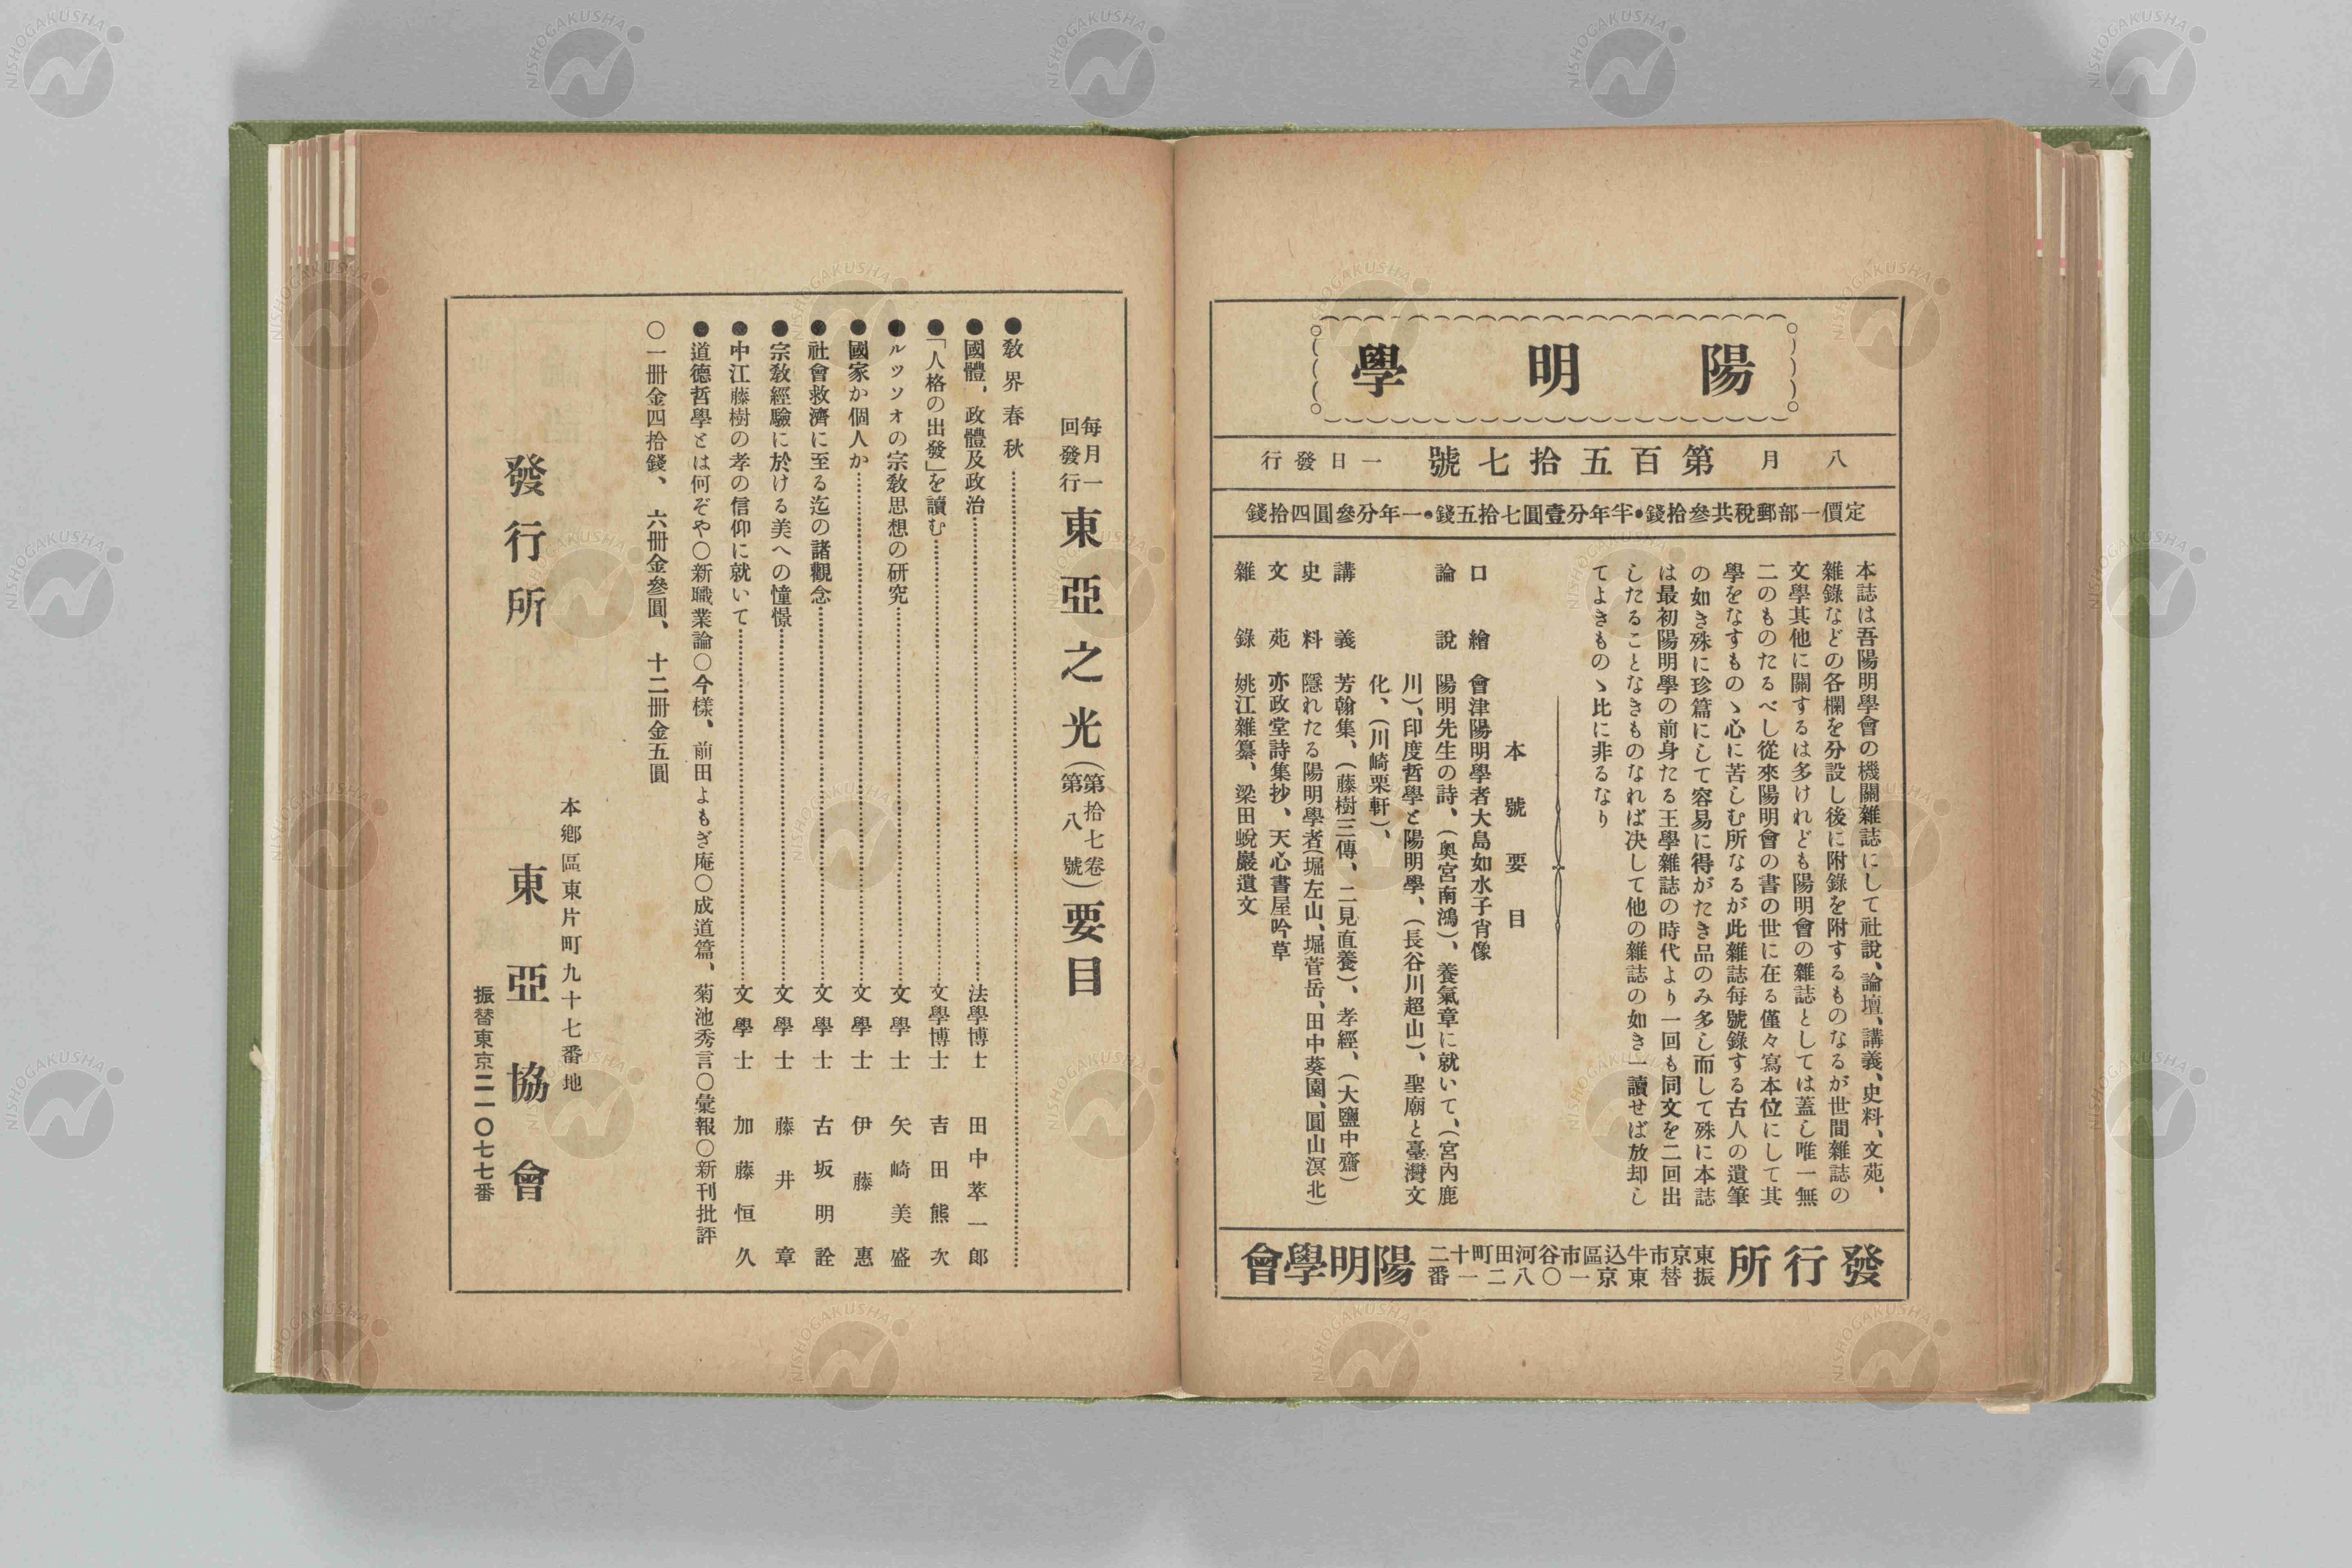 陽明學
八月 第百五拾七號 一日發行
定價一部郵税共參拾錢●半年分壹圓七拾五錢●一年分參圓四拾錢
本誌は吾陽明學會の機關雜誌にして社說、論壇、講義、史料、文苑、
雜錄などの各欄を分設し後に附錄を附するものなるが世間雜誌の
文學其他に關するは多けれども陽明會の雜誌としては蓋し唯一無
二のものたるべし從來陽明會の書の世に在る僅々寫本位にして其
學をなすものゝ心に苦しむ所なるが此雜誌每號錄する古人の遺筆
の如き殊に珍篇にして容易に得がたき品のみ多し而して殊に本誌
は最初陽明學の前身たる王學雜誌の時代より一回も同文を二回出
したることなきものなれば決して他の雜誌の如き一讀せば放却し
てよきものゝ比に非るなり
本號要目
口繪 會津陽明學者大島如水子肖像
論說 陽明先生の詩、(奧宮南鴻)、養氣章に就いて、(宮內鹿
川)、印度哲學と陽明學、(長谷川超山)、聖廟と臺灣文
化、(川崎栗軒)、
講義 芳翰集、(藤樹三傳、二見直養)、孝經、(大鹽中齋)
史料 隱れたる陽明學者(堀左山、堀菅岳、田中葵園、圓山溟北)
文苑 亦政堂詩集抄、天心書屋吟草
雜錄 姚江雜纂、梁田蛻巖遺文
發行所 東京市牛込區市谷河田町十二 振替東京一〇八二一番 陽明學會
每月一回發行 東亞之光(第拾七卷第八號)要目
●敎界春秋
●國體，政體及政治 法學博士 田中萃一郎
●「人格の出發」を讀む 文學博士 吉田熊次
●ルッソオの宗敎思想の研究 文學士 矢崎美盛
●國家か個人か 文學士 伊藤惠
●社會救濟に至る迄の諸觀念 文學士 古坂明詮
●宗敎經驗に於ける美への憧憬 文學士 藤井章
●中江藤樹の孝の信仰に就いて 文學士 加藤恒久
●道德哲學とは何ぞや〇新職業論〇今樣、前田よもぎ庵〇成道篇、菊池秀言〇彙報〇新刊批評
〇一冊金四拾錢、六冊金參圓、十二冊金五圓
本鄕區東片町九十七番地
發行所 東亞協會
振替東京二一〇七七番
NISHOGAKUSHA